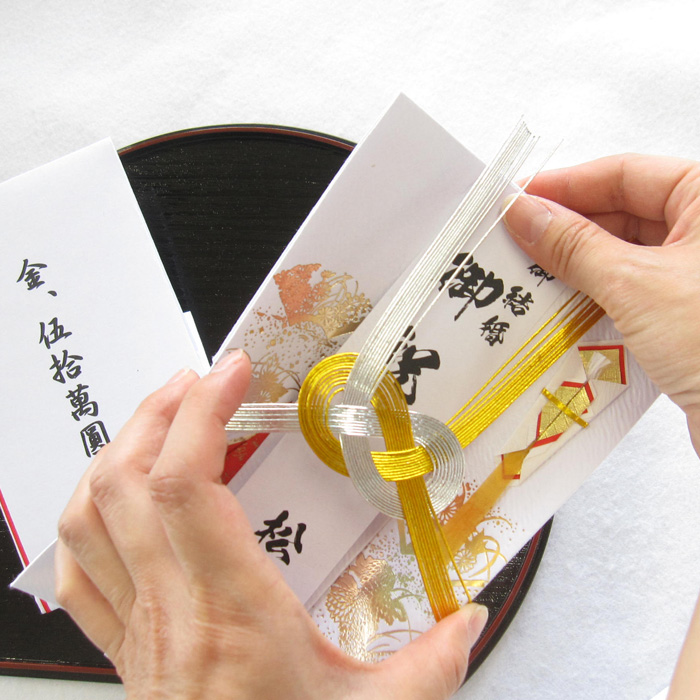 金、伍拾萬圓
御結婚
御